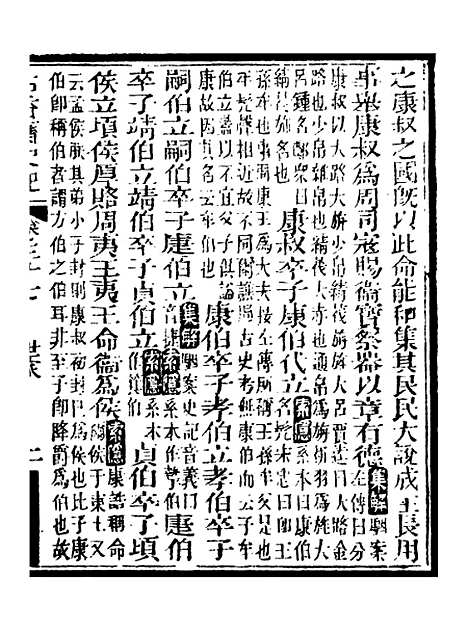 之康叔之國旣以此命能和集其民民大說成王長用
事舉康叔為周司寇賜衞寶祭器以章有德集解駰案左傳曰分
康叔以大路大旂少帛綪茷旃旌大呂賈逵曰大路金
路也少帛雜帛也綪茷大赤也通帛為旃析羽為旌大
呂鍾名鄭衆曰綪茷旆名也康叔卒子康伯代立索隱系本曰康伯名髠宋忠曰卽王
孫牟也事周康王為大夫按左傳所稱王孫牟父是也
牟髠聲相近故不同耳譙周古史考無康伯而云子牟
伯立葢以不宜父子俱謚康故因其名云牟伯也康伯卒子考伯立考伯卒子
嗣伯立嗣伯卒子㨗伯立集解駰案史記音義曰音捷索隱系本作摯伯㨗伯
卒子靖伯立靖伯卒子貞伯立索隱系本作箕伯貞伯卒子頃
侯立頃侯厚賂周夷王夷王命衞為侯索隱康誥稱命爾侯于東土又
云孟侯朕其弟小子封則康叔初封已為侯也比子康
伯卽稱伯者謂方伯之伯耳非至子卽降爵為伯也故
世家